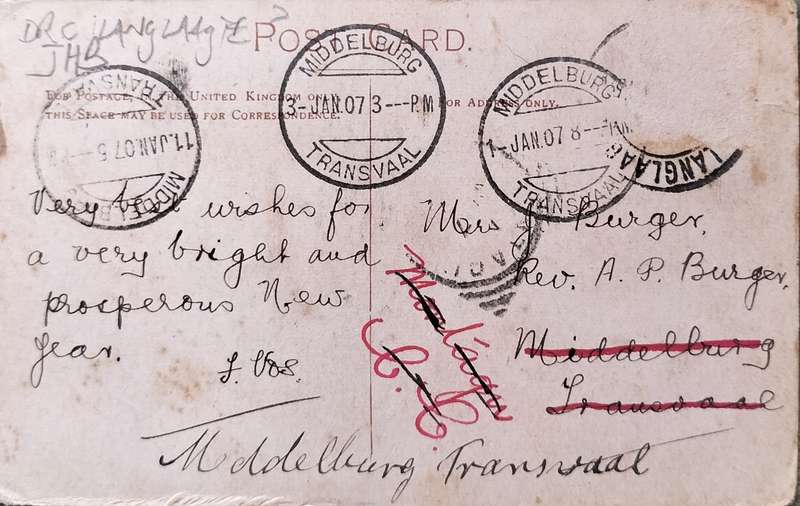 DRC LANGLAAGTE ?
JHB
POST CARD.
FOR POSTAGE IN THE UNITED KINGDOM ONLY
THIS SPACE MAY BE USED FOR CORRESPONDENCE.
FOR ADDRESS ONLY.
MIDDELBURG
3-JAN.07 3---PM
TRANSVAAL
MIDDELBURG
1-JAN.07 8---AM
TRANSVAAL
TRANSV
11.JAN.07 5
MIDDELB
LANGLAAG
Very best wishes for
a very bright and
prosperous New
Year.
J. Vos.
Mrs J Burger,
Rev. A. P. Burger,
Middelburg
Transvaal
C. C.
Middelburg Transvaal